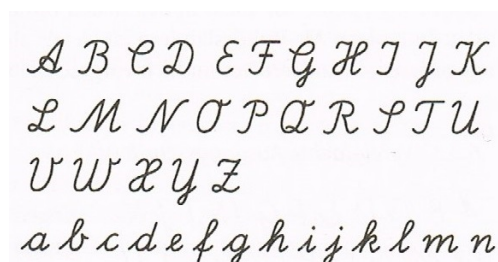 A B C D E F G H I J K
L M N O P Q R S T U
V W X Y Z
a b c d e f g h i j k l m n